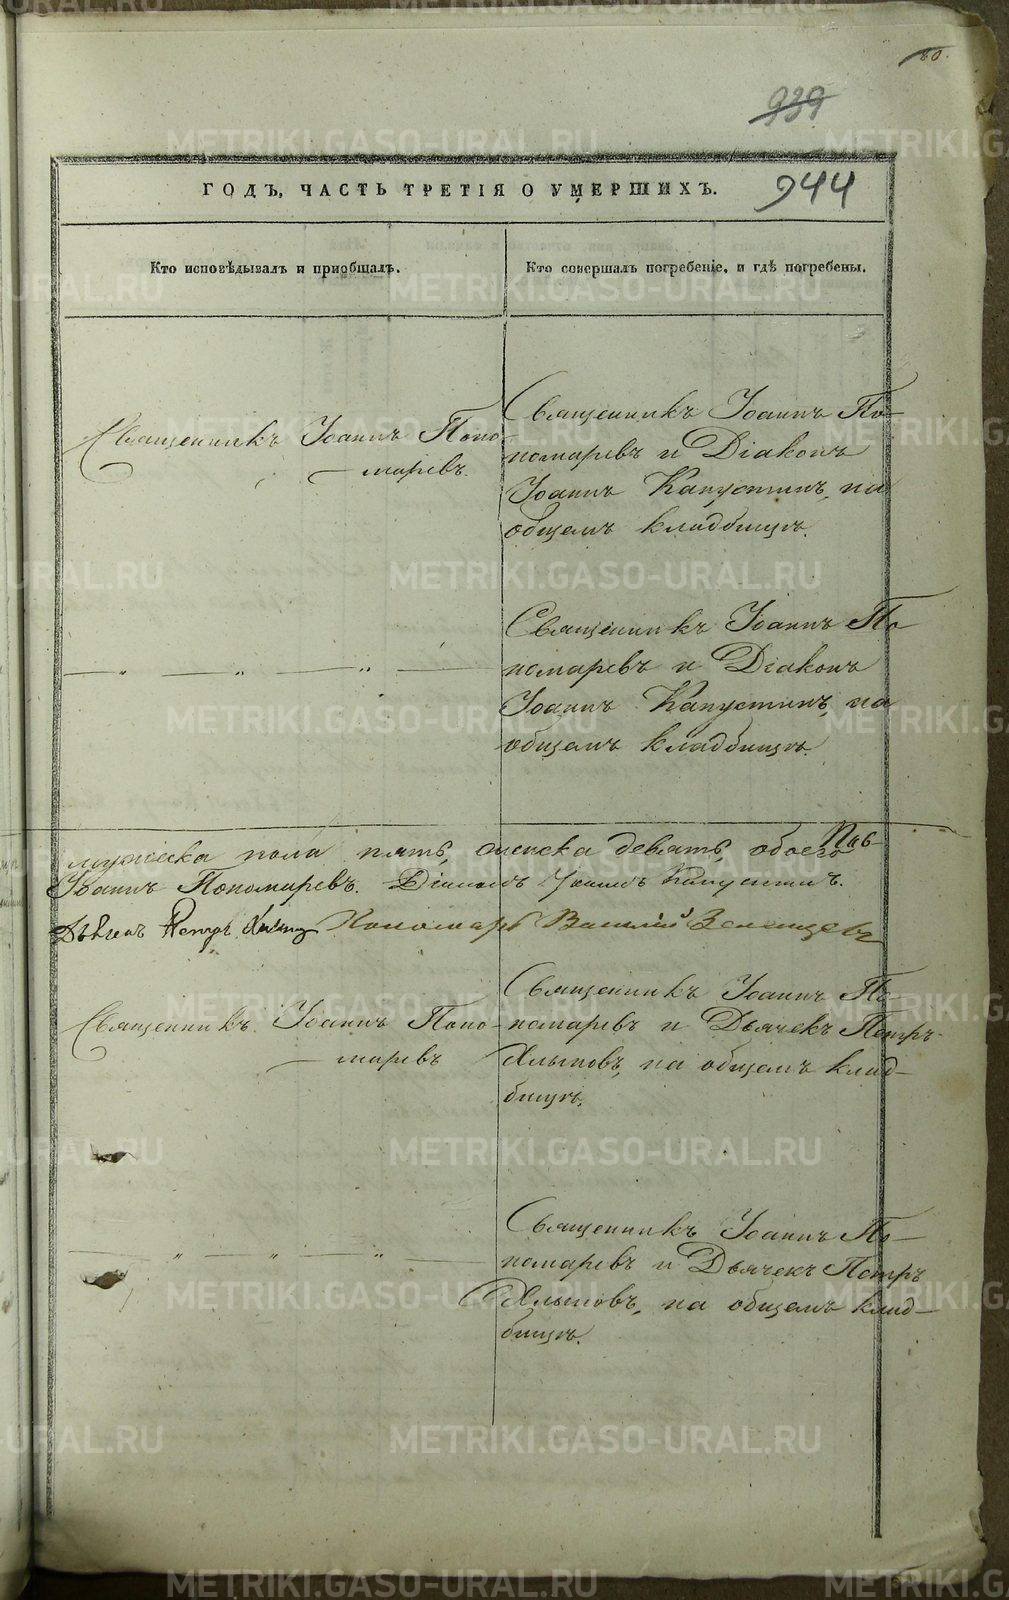 80.
939
944
ГОДЪ, ЧАСТЬ ТРЕТІЯ О УМЕРШИХЪ.
Кто исповѣдывалъ и пріобщалъ.
Кто совершалъ погребеніе, и гдѣ погребены.
Священникъ Іоаннъ Поно
маревъ.
Священникъ Іоаннъ По-
номаревъ и Діаконъ
Іоаннъ Капустинъ, на
общемъ кладбищѣ.
— „ — „ — „ —
Священникъ Іоаннъ По
номаревъ и Діаконъ
Іоаннъ Капустинъ, на
общемъ кладбищѣ.
мужеска пола пять, женска девять, обоего
Іоаннъ Пономаревъ. Діаконъ Іоаннъ Капустинъ.
Дьячекъ Петръ Пономарь Василій
Священникъ Іоаннъ Поно-
маревъ
Священникъ Іоаннъ По-
номаревъ и Дьячекъ Петръ
Хлыновъ, на общемъ клад-
бищѣ.
— „ — „ — „ —
Священникъ Іоаннъ По-
номаревъ и Дьячекъ Петръ
Хлыновъ, на общемъ клад-
бищѣ.
METRIKI.GASO-URAL.RU